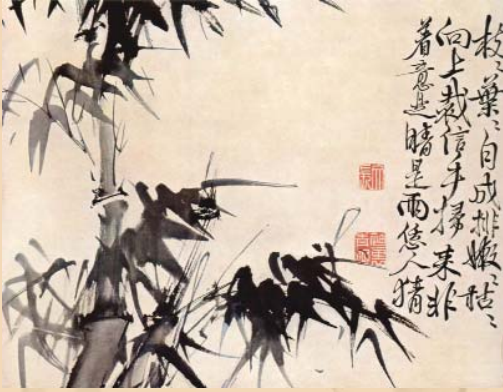 枝〻葉〻自成排嫩〻枯〻
向上栽信手掃來非
着意是晴是雨恁人猜